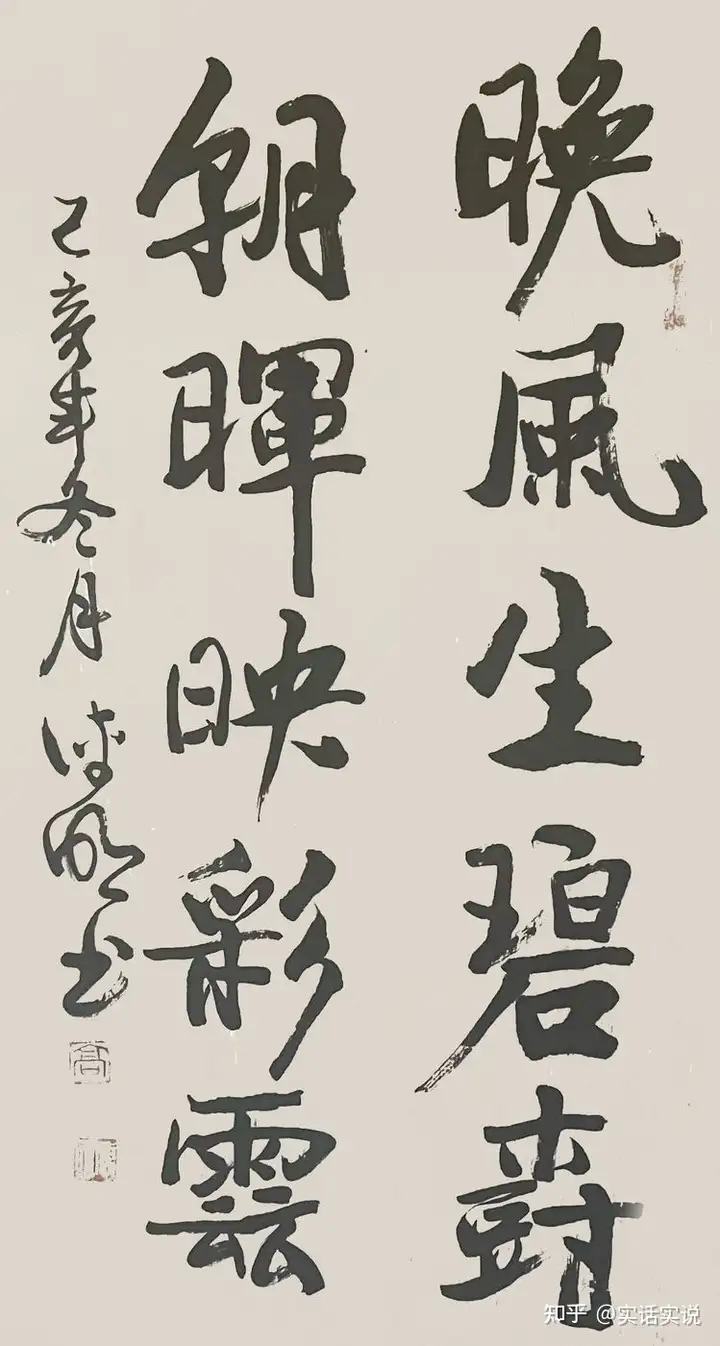 晚風生碧樹
朝暉映彩雲
己亥年冬月 书
高
知乎 @实话实说